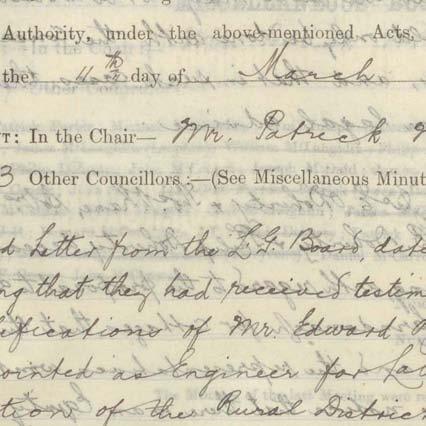 Authority, under the above-mentioned Acts,
the 4th day of March
T: In the Chair— Mr. Patrick
3 Other Councillors:—(See Miscellaneous Minut
d Letter from the L.G. Board, date
ng that they had received testim
lifications of Mr. Edward
ointed as Engineer for La
tion of the Rural District